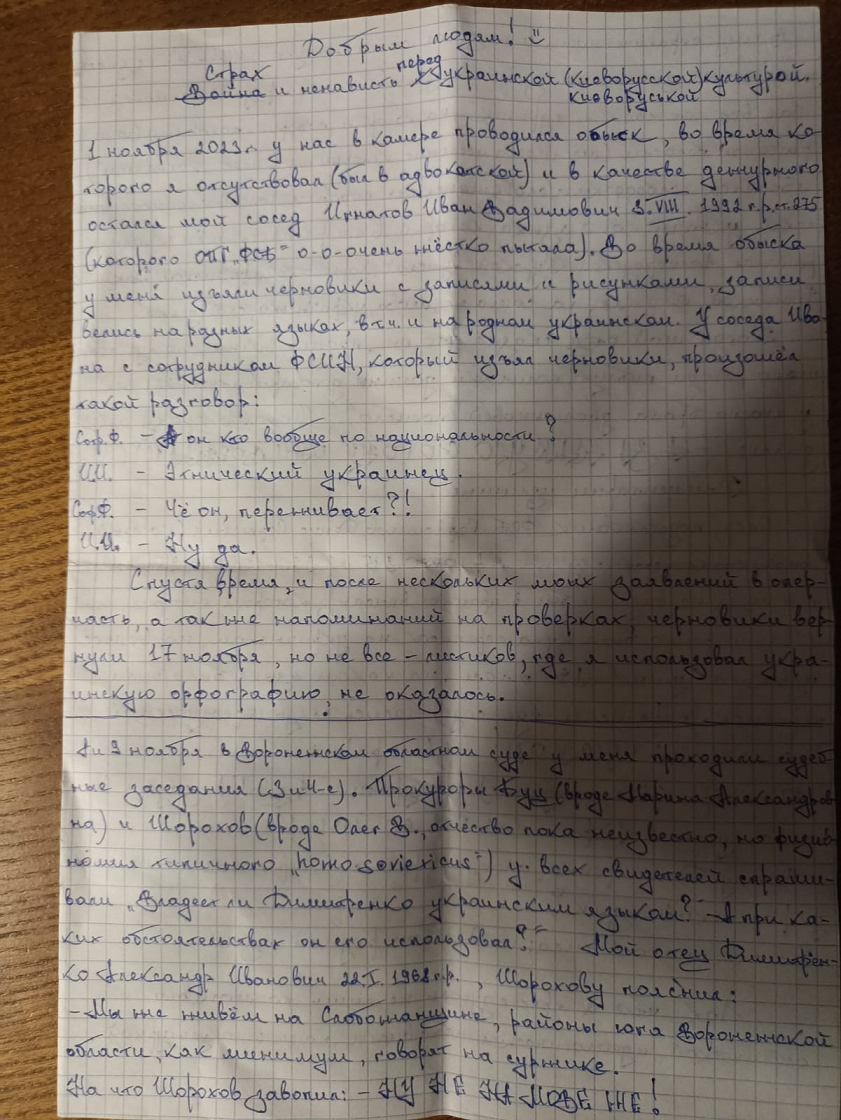 Добрым людам! :)
Страх перед
Война и ненависть к украинской (киеворусской) культурой.
киеворуської
1 ноября 2023г. у нас в камере проводился обыск, во время ко-
торого я отсутствовал (был в адвокатской) и в качестве дежурного
остался мой сосед Игнатов Иван Вадимович 3.VIII. 1992 г.р.,ст.275
(которого ОПГ „ФСБ" о-о-очень жёстко пытала). Во время обыска
у меня изъяли черновики с записями и рисунками, записи
велись на разных языках, в т.ч. и на родном украинском. У соседа Ива-
на с сотрудником ФСИН, который изъял черновики, произошёл
такой разговор:
Сотр.Ф. – А он кто вообще по национальности?
И.И. – Этнический украинец.
Сотр.Ф. – Чё он, переживает?!
И.И. – Ну да.
Спустя время, и после нескольких моих заявлений в опер-
часть, а также напоминаний на проверках, черновики вер-
нули 17 ноября, но не все – листиков, где я использовал укра-
инскую орфографию, не оказалось.
и 9 ноября в Воронежском областном суде у меня проходили судеб-
ные заседания (3 и 4-е). Прокуроры Буц (вроде Марина Александров-
на) и Шорохов (вроде Олег В., отчество пока неизвестно, но физио-
номия типичного „homo sovieticus") у всех свидетелей спраши-
вали „Владеет ли Димитренко украинским языком?" „А при ка-
ких обстоятельствах он его использовал?" Мой отец Димитрен-
ко Александр Иванович 22.I.1968г.р., Шорохову пояснил:
– Мы же живём на Слобожанщине, районы юга Воронежской
области, как минимум, говорят на суржике.
На что Шорохов завопил: – НУ НЕ НА МОВЕ ЖЕ!